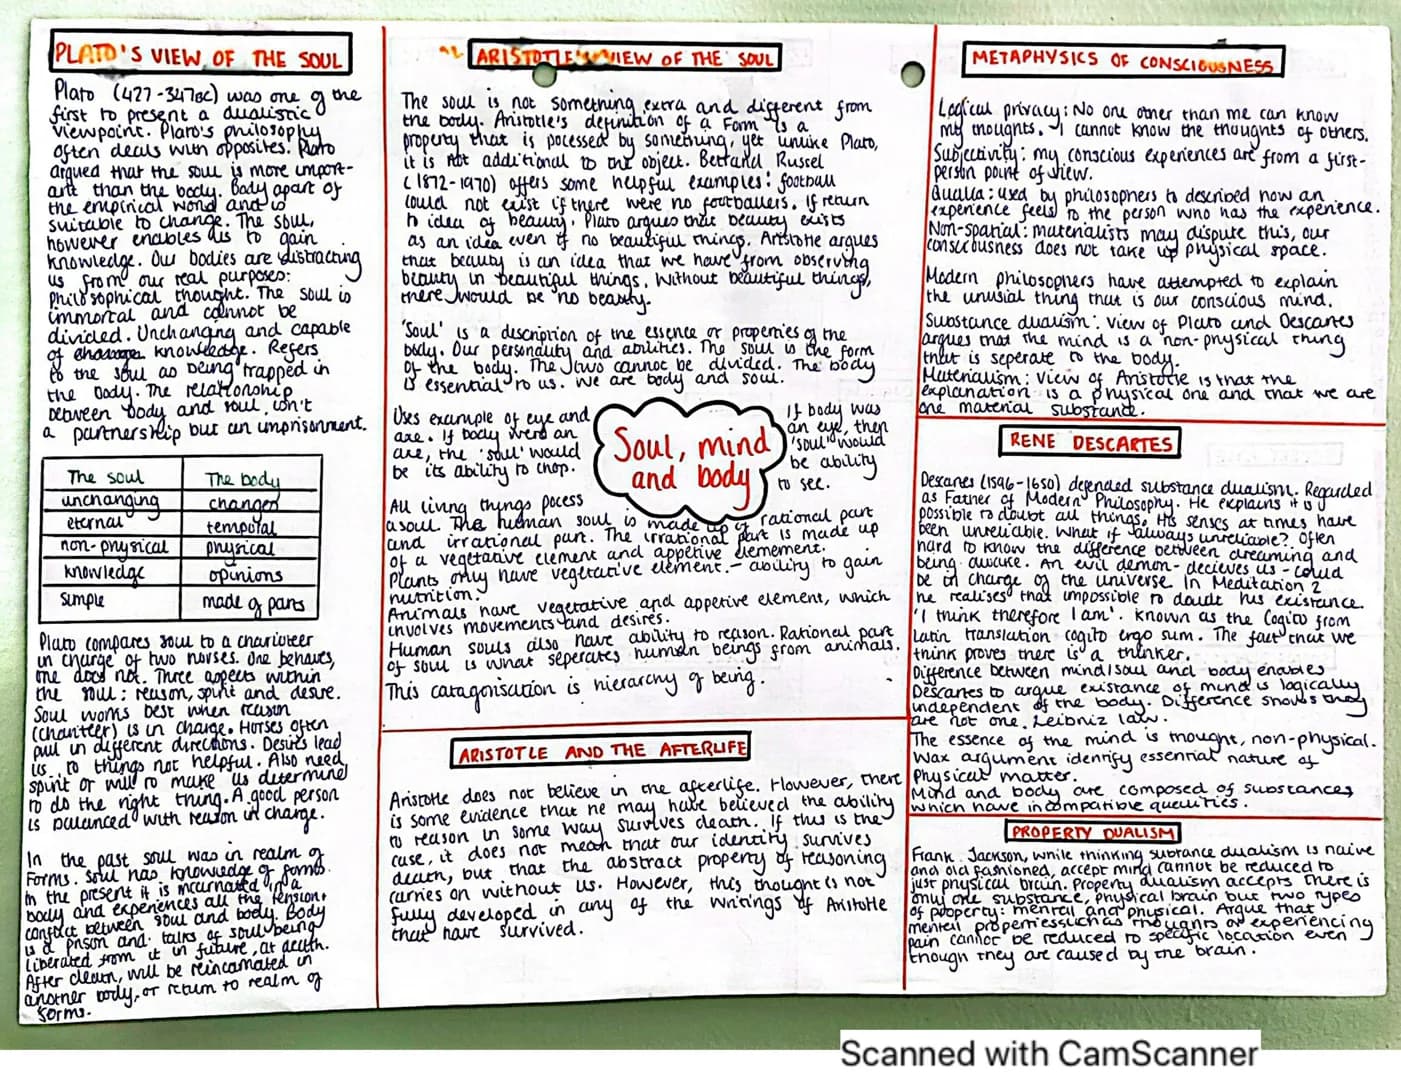 PLATO'S VIEW OF THE SOUL
Plato (427-347BC) was one of the
first to present a dualistic
viewpoint. Plato's philosophy
often deals with opposites. Plato
argued that the soul is more import-
ant than the body. Body apart of
the empirical world and is
suitable to change. The soul,
however enables us to gain
knowledge. Our bodies are distracting
us from our real purpose:
philosophical thought. The soul is
immortal and cannot be
divided. Unchanging and capable
of knowledge. Refers
to the soul as being trapped in
the body. The relationship
between body and soul isn't
a partnership but an imprisonment.
The soul The body
unchanging changed
eternal temporal
non-physical physical
knowledge opinions
simple made of parts
Plato compares soul to a charioteer
in charge of two horses. One behaves,
one does not. Three aspects within
the soul: reason, spirit and desire.
Soul works best when reason
(charioteer) is in charge. Horses often
pull in different directions. Desires lead
us to things not helpful. Also need
spirit or will to make us determined
to do the right thing. A good person
is balanced with reason in charge.
In the past soul was in realm of
Forms. Soul has knowledge of forms.
In the present it is incarnated in a
body and experiences all the tension,
conflict between soul and body. Body
is a prison and talks of soul being
liberated from it in future, at death.
After death, will be reincarnated in
another body, or return to realm of
forms.
ARISTOTLE'S VIEW OF THE SOUL
The soul is not something extra and different from
the body. Aristotle's definition of a Form is a
property that is pocessed by something, yet unlike Plato,
it is not additional to the object. Bertrand Russel
(1872-1970) offers some helpful examples: football
could not exist if there were no footballers. If return
to idea of beauty. Plato argues that beauty exists
as an idea even if no beautiful things. Aristotle argues
that beauty is an idea that we have from observing
beauty in beautiful things. Without beautiful things,
there would be no beauty.
'Soul' is a description of the essence or properties of the
body. Our personality and abilities. The soul is the form
of the body. The two cannot be divided. The body
is essential to us. We are body and soul.
Uses example of eye and
axe. If body were an
axe, the 'soul' would
be its ability to chop.
Soul, mind
and body
If body was
an eye, then
'soul' would
be ability
to see.
All living things pocess
a soul. The human soul is made up of rational part
and irrational part. The irrational part is made up
of a vegetative element and appetive elemement.
Plants only have vegetative element - ability to gain
nutrition.
Animals have vegetative and appetive element, which
involves movements and desires.
Human souls also have ability to reason. Rational part
of soul is what seperates human beings from animals.
This catagorisation is hierarchy of being.
ARISTOTLE AND THE AFTERLIFE
Aristotle does not believe in the afterlife. However, there
is some evidence that he may have believed the ability
to reason in some way survives death. If this is the
case, it does not mean that our identity survives
death, but that the abstract property of reasoning
carries on without us. However, this thought is not
fully developed in any of the writings of Aristotle
that have survived.
METAPHYSICS OF CONSCIOUSNESS
Logical privacy: No one other than me can know
my thoughts. I cannot know the thoughts of others.
Subjectivity: my conscious experiences are from a first-
person point of view.
Qualia: used by philosophers to described how an
experience feels to the person who has the experience.
Non-spatial: materialists may dispute this, our
consciousness does not take up physical space.
Modern philosophers have attempted to explain
the unusual thing that is our conscious mind.
Substance dualism: View of Plato and Descartes
argues that the mind is a non-physical thing
that is seperate to the body.
Materialism: View of Aristotle is that the
explanation is a physical one and that we are
one material substance.
RENE DESCARTES
Descartes (1596-1650) defended substance dualism. Regarded
as Father of Modern Philosophy. He explains it is
possible to doubt all things. His senses at times have
been unreliable. What if always unreliable? Often
hard to know the difference between dreaming and
being awake. An evil demon - decieves us - could
be in charge of the universe. In Meditation 2
he realises that impossible to doubt his existance.
'I think therefore I am'. Known as the Cogito from
Latin translation cogito ergo sum. The fact that we
think proves there is a thinker.
Difference between mind/soul and body enables
Descartes to argue existance of mind is logically
independent of the body. Difference shows they
are not one. Leibniz law.
The essence of the mind is thought, non-physical.
Wax argument identify essential nature of
Physical matter.
Mind and body are composed of substances
which have incompatible qualities.
PROPERTY DUALISM
Frank Jackson, while thinking substance dualism is naive
and old fashioned, accept mind cannot be reduced to
just physical brain. Property dualism accepts there is
only one substance, physical brain but two types
of property: mental and physical. Argue that
mental properties such as thoughts or experiencing
pain cannot be reduced to specific location even
though they are caused by the brain.
Scanned with CamScanner